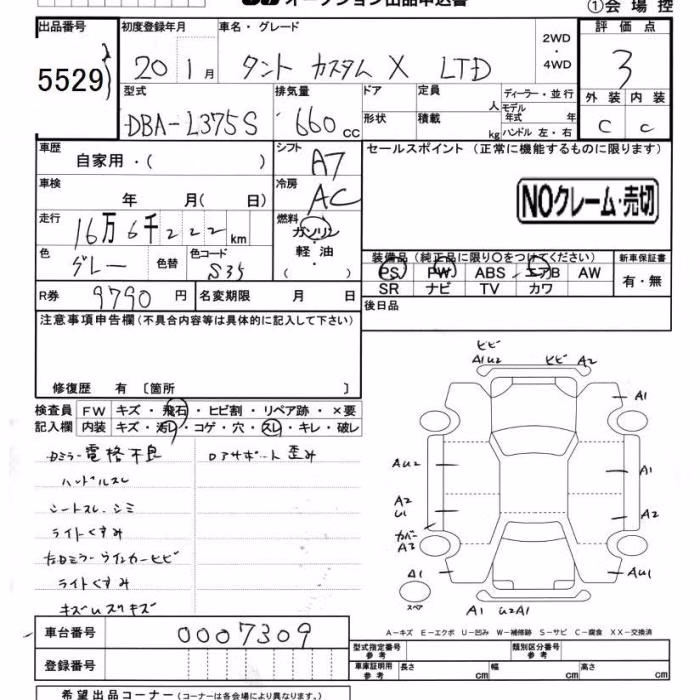 オークション出品申込書 ①会場控
出品番号 初度登録年月 車名・グレード 2WD・4WD 評価点
5529 20 1月 タント カスタム X LTD 3
型式 排気量 ドア 定員 人 ディーラー・並行 外装 内装
DBA-L375S 660cc 形状 積載 kg モデル年式 年 ハンドル 左・右 C C
車歴 自家用・( ) シフト A7 セールスポイント (正常に機能するものに限ります)
車検 年 月( 日) 冷房 AC NOクレーム・売切
走行 16万6千222km 燃料 ガソリン・軽油・( )
色 グレー 色替 色コード S35 装備品(純正品に限り○をつけてください) 新車保証書
PS PW ABS エアB AW 有・無
R券 9790円 名変期限 月 日 SR ナビ TV カワ
注意事項申告欄(不具合内容等は具体的に記入して下さい) 後日品
修復歴 有 〔箇所 〕
検査員 FW キズ・飛石・ヒビ割・リペア跡・×要
記入欄 内装 キズ・汚レ・コゲ・穴・スレ・キレ・破レ
Dミラー電格不良 Dアサポート歪み
ハンドルスレ
シートスレ、シミ
ライトくすみ
右Dミラーウインカーヒビ
ライトくすみ
キズUスリキズ
ヒビ A1U2 ヒビ A2
A1
AU2 A1
A2 U1 A2
カバーA3
A1 AU1
スペア A1 U2A1
A－キズ E－エクボ U－凹み W－補修跡 S－サビ C－腐食 XX－交換済
車台番号 0007309 型式指定番号 参考 類別区分番号 参考
登録番号 車庫証明用 参考 長さ cm 幅 cm 高さ cm
希望出品コーナー(コーナーは各会場により異なります。)